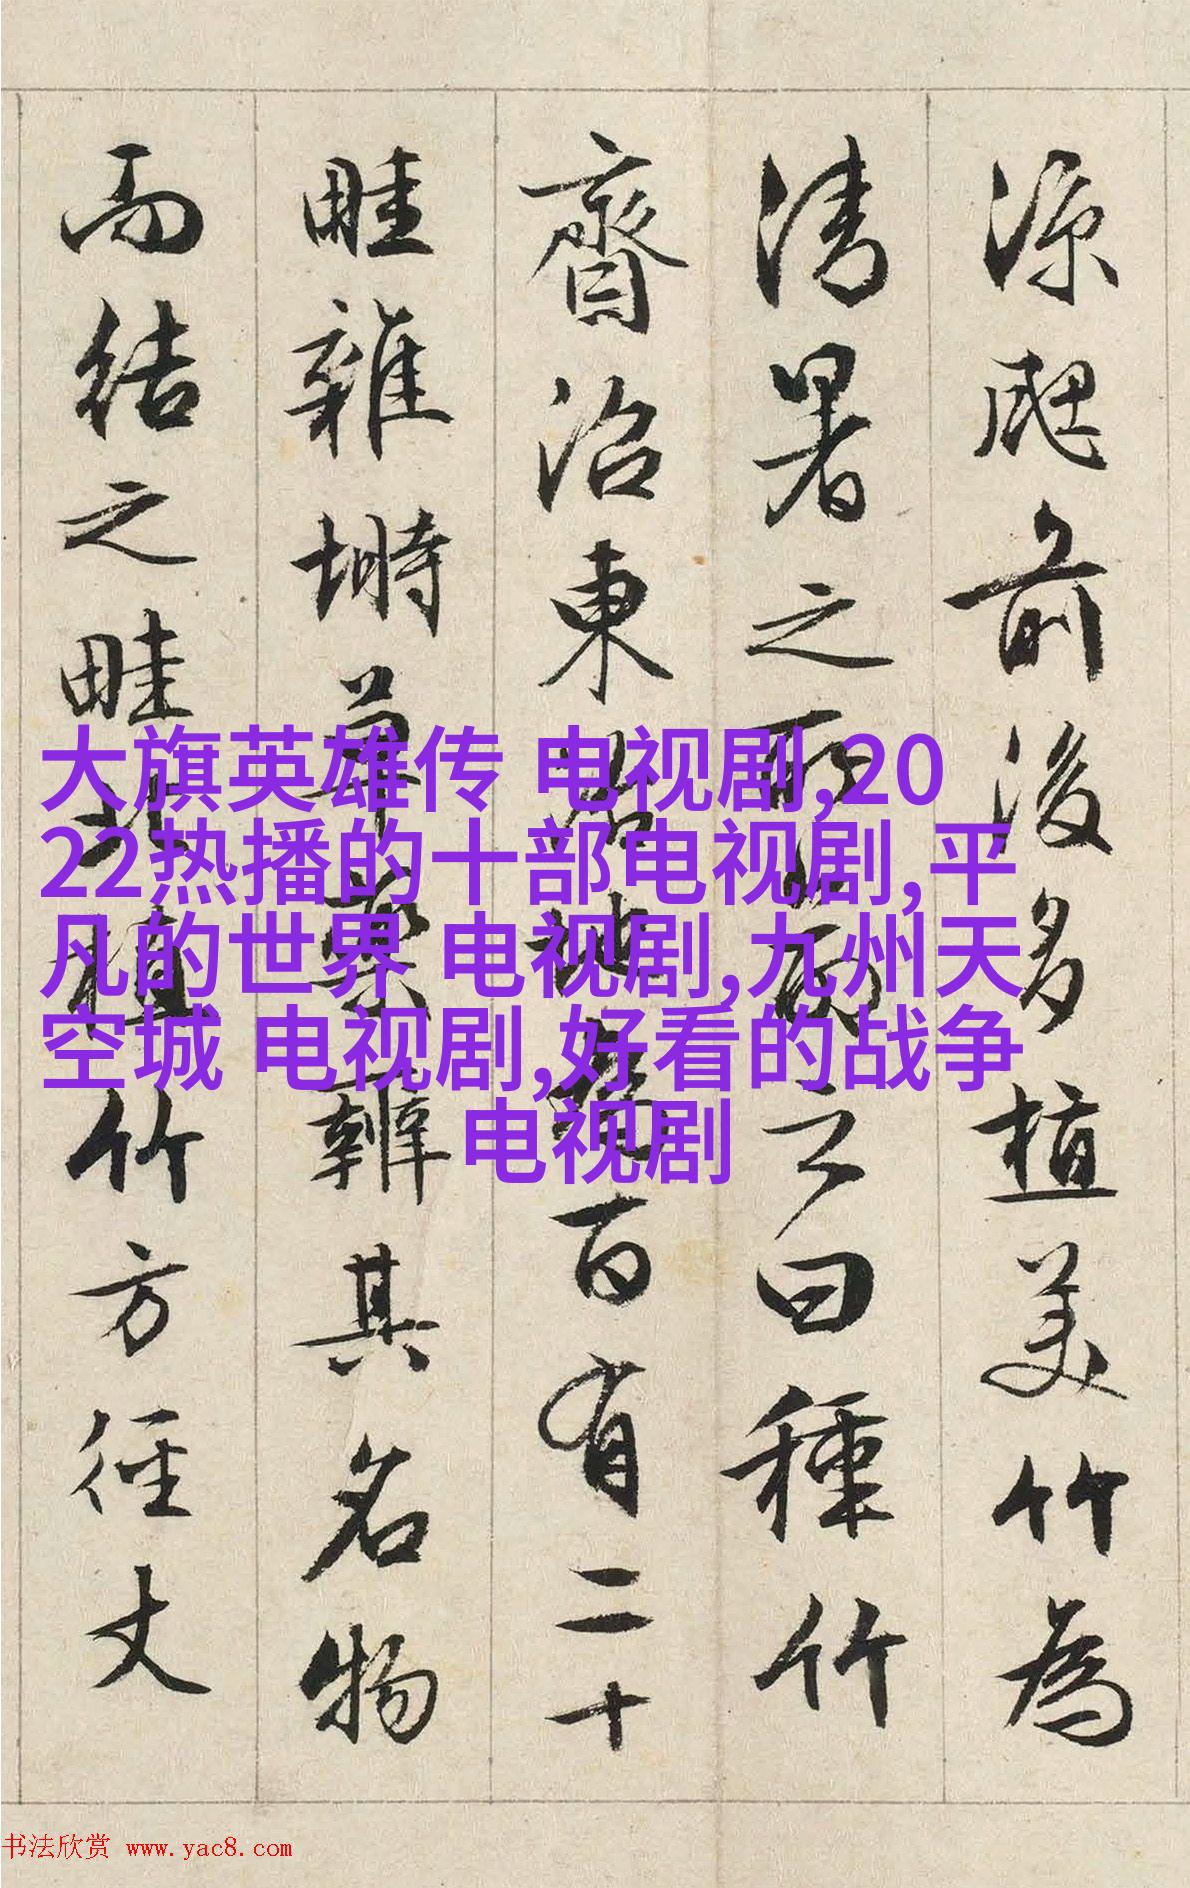 涼颸前後多植美竹為
清暑之所命之曰種竹
齋沼東治地為百有二十
畦雜蒔草藥辨其名物
而結之畦北植竹方徑丈
大旗英雄传 电视剧,20
22热播的十部电视剧,平
凡的世界 电视剧,九州天
空城 电视剧,好看的战争
电视剧
书法欣赏 www.yac8.com